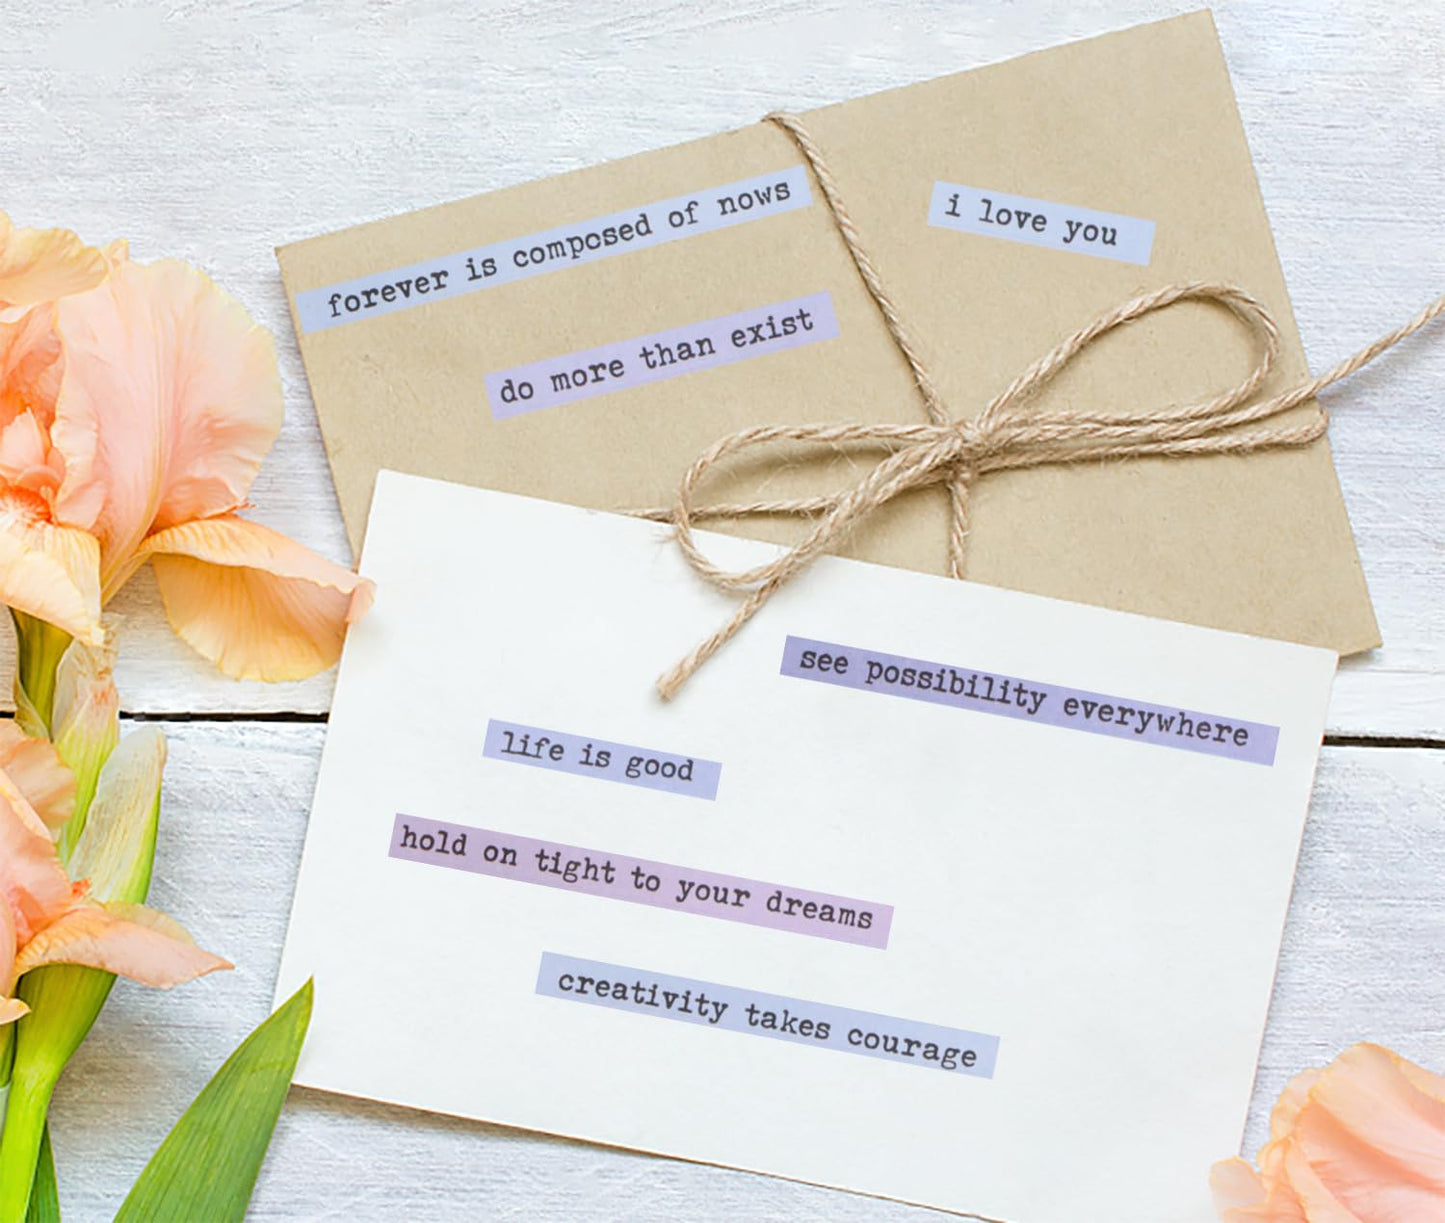 forever is composed of nows
i love you
do more than exist
see possibility everywhere
life is good
hold on tight to your dreams
creativity takes courage